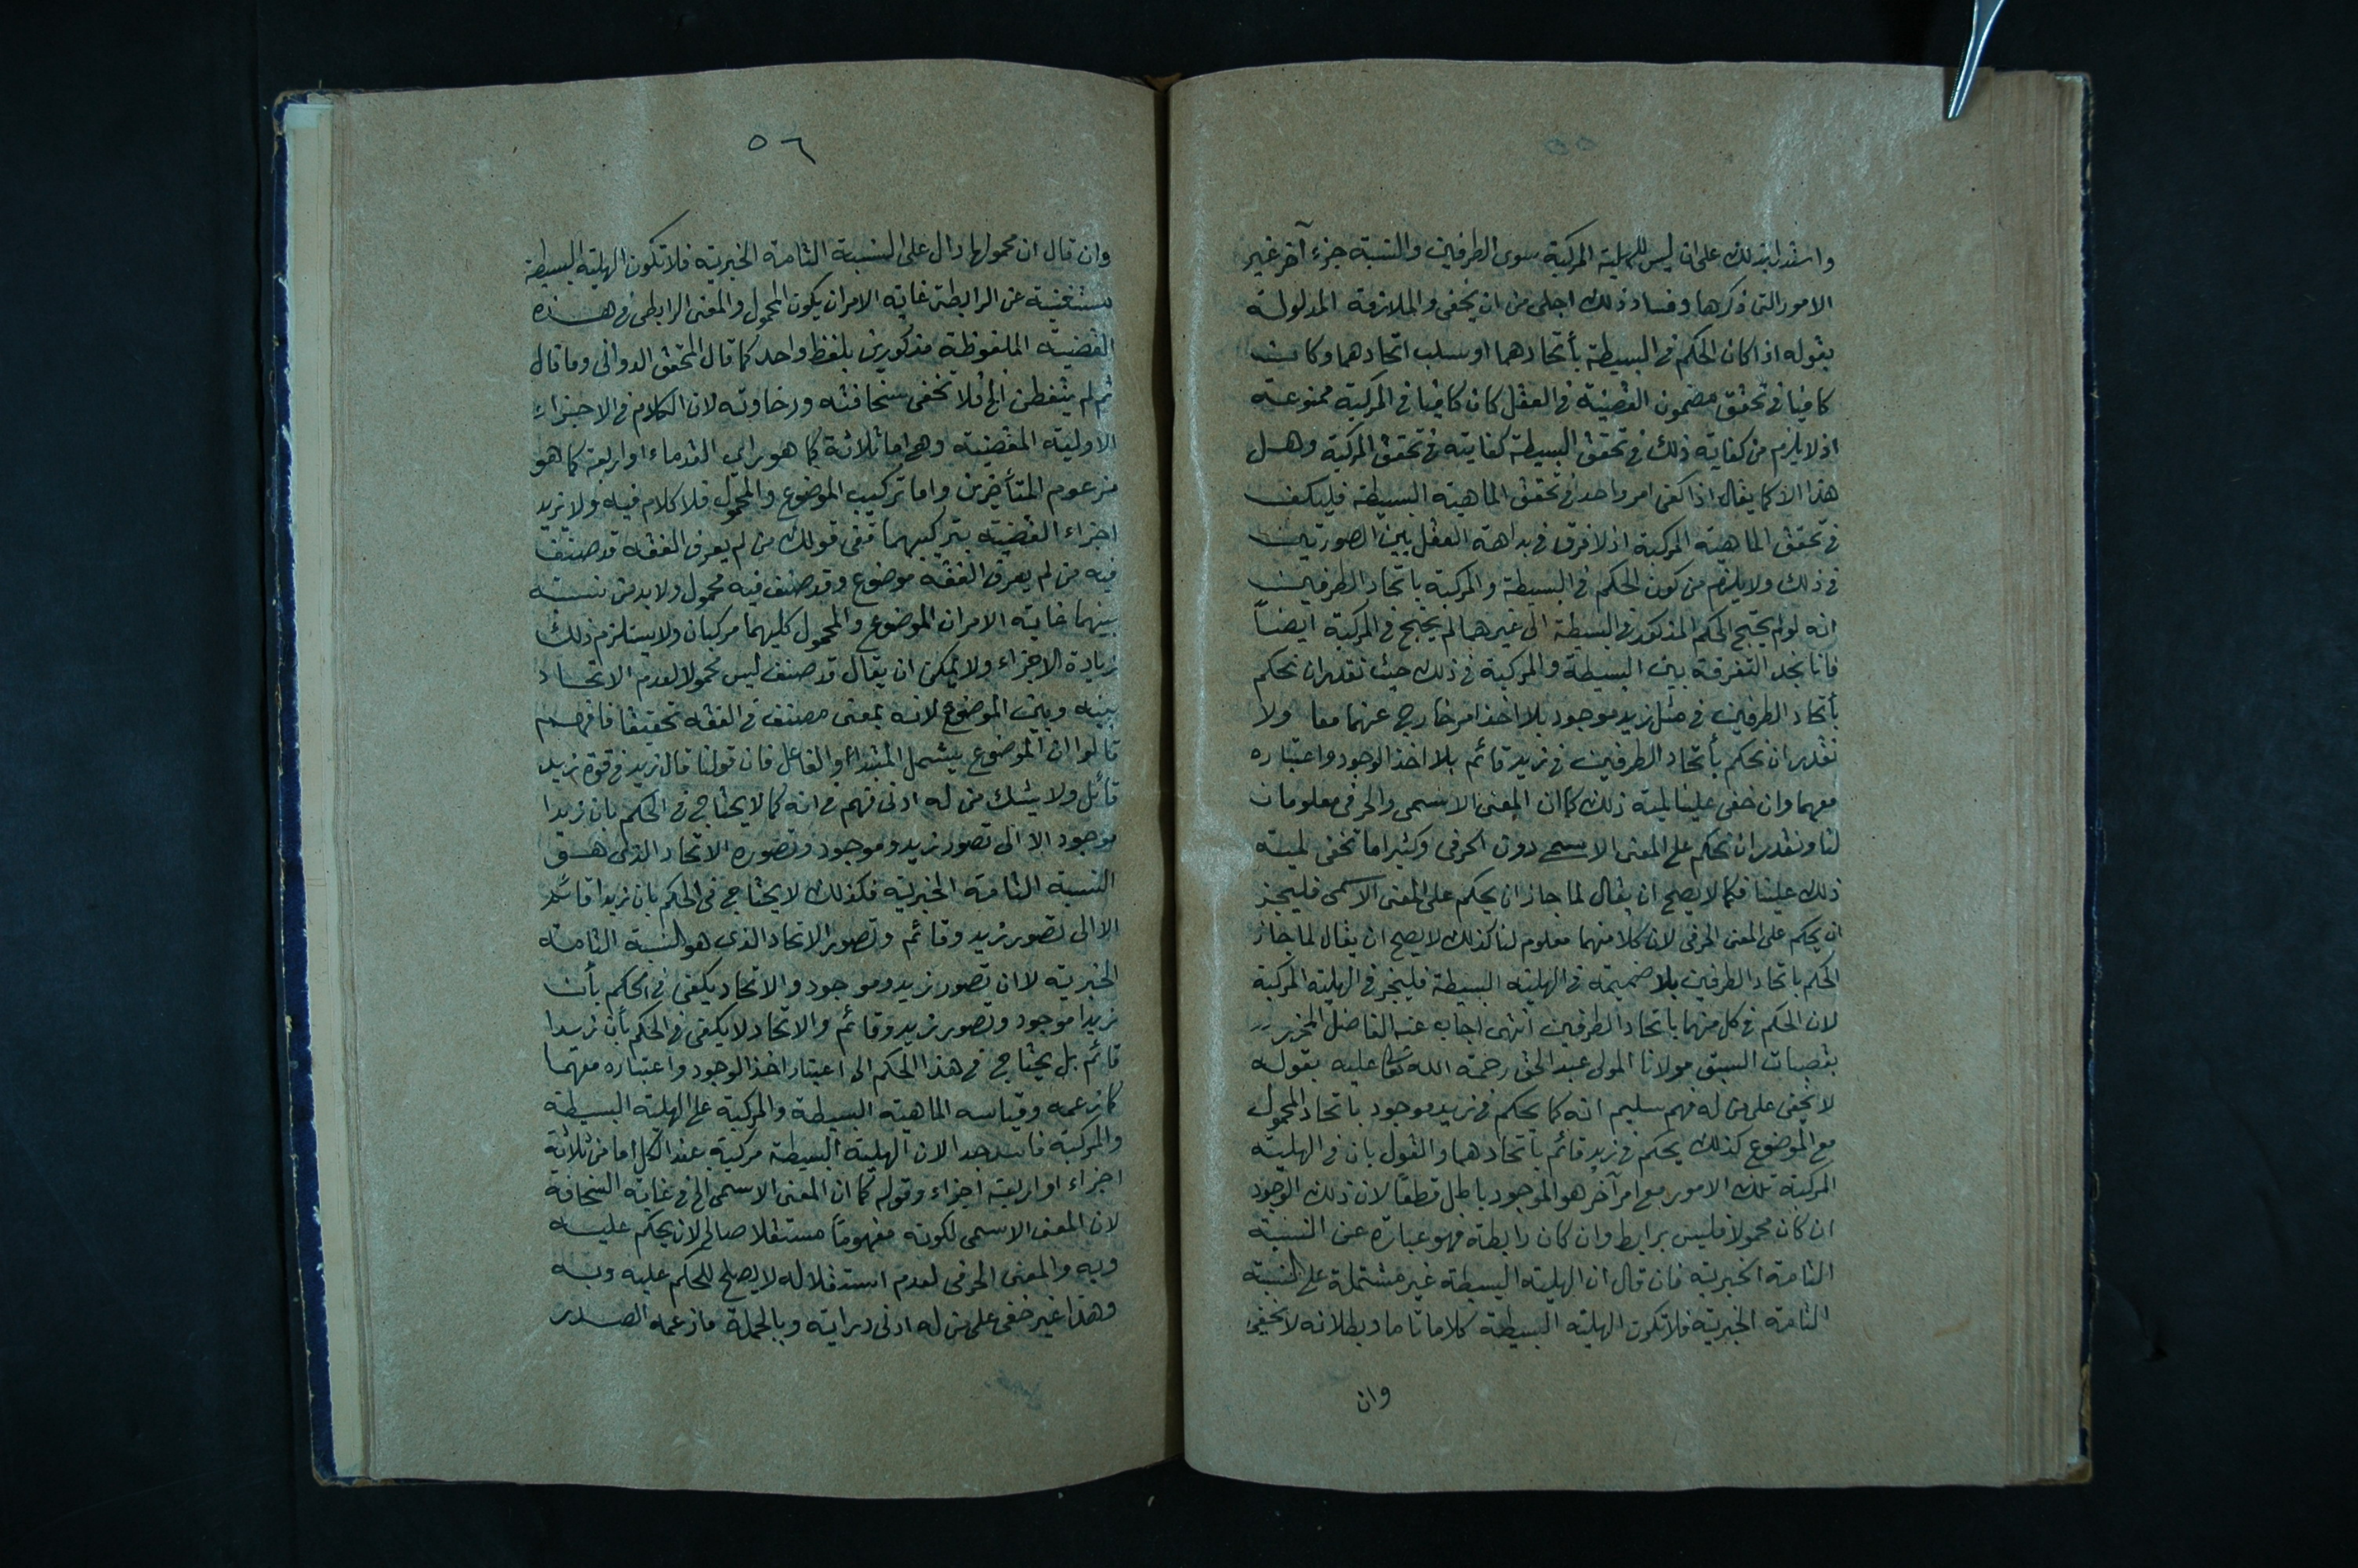 ٥٥
واستدل بذلك على ان ليس للهلية المركبة سوى الطرفين والنسبة جزء آخر غير
الامور التى ذكرها وفساد ذلك اجلى من ان يخفى والملازمة المدلولة
بقوله اذا كان الحكم فى البسيطة بأتحادهما او سلب اتحادهما وكانت
كافيا فى تحقق مضمون القضية فى العقل كان كافيا فى المركبة ممنوعة
اذ لا يلزم من كفاية ذلك فى تحقق البسيطة كفايته فى تحقق المركبة وهل
هذا الا كما يقال اذا كفى امر واحد فى تحقق الماهية البسيطة فليكف
فى تحقق الماهية المركبة اذ لا فرق فى بداهة العقل بين الصورتين
فى ذلك ولا يلزم من كون الحكم فى البسيطة والمركبة باتحاد الطرفين
انه لو لم يحتج الحكم المذكور فى البسيطة الى غيرهما لم يحتج فى المركبة ايضاً
فانا نجد التفرقة بين البسيطة والمركبة فى ذلك حيث نقدر ان نحكم
بأتحاد الطرفين فى مثل زيد موجود بلا اخذ امر خارج عنهما معا ولا
نقدر ان نحكم بأتحاد الطرفين فى زيد قائم بلا اخذ الوجود واعتباره
معهما وان خفى علينا لمية ذلك كما ان المعنى الاسمى والحرفى معلومان
لنا ونقدر ان نحكم على المعنى الاسمى دون الحرفى وكثيرا ما تخفى لمية
ذلك علينا فكما لا يصح ان يقال لما جاز ان يحكم على المعنى الاسمى فليجز
ان يحكم على المعنى الحرفى لان كلا منهما معلوم لنا كذلك لا يصح ان يقال لما جاز
الحكم باتحاد الطرفين بلا ضميمة فى الهلية البسيطة فليجز فى الهلية المركبة
لان الحكم فى كل منهما باتحاد الطرفين انتهى اجاب عنه الفاضل المحرز
بقصبات السبق مولانا المولى عبد الحق رحمة الله تعالى عليه بقوله
لا يخفى على من له فهم سليم انه كما يحكم فى زيد موجود باتحاد المحمول
مع الموضوع كذلك يحكم فى زيد قائم بأتحادهما والقول بان فى الهلية
المركبة تلك الامور مع امر آخر هو الموجود باطل قطعاً لان ذلك الوجود
ان كان محمولا فليس برابط وان كان رابطة فهو عبارة عن النسبة
التامة الخبرية فان قال ان الهلية البسيطة غير مشتملة على النسبة
التامة الخبرية فلا تكون الهلية البسيطة كلاما تاما وبطلانه لا يخفى
وان
٥٦
وان قال ان محمولها دال على النسبة التامة الخبرية فلا تكون الهلية البسيطة
مستغنية عن الرابطة غاية الامر ان يكون المحمول والمعنى الرابطى فى هذه
القضية الملفوظة مذكورين بلفظ واحد كما قال المحقق الدوانى وما قال
ثم لم يتفطن الخ فلا تخفى سخافته ورخاوته لان الكلام فى الاجزاء
الاولية للقضية وهى اما ثلاثة كما هو راى القدماء او اربعة كما هو
مزعوم المتأخرين واما تركيب الموضوع والمحمول فلا كلام فيه ولا يزيد
اجزاء القضية بتركيبهما ففى قولك من لم يعرف الفقه قد صنف
فيه من لم يعرف الفقه موضوع وقد صنف فيه محمول ولا بد من نسبة
بينهما غاية الامر ان الموضوع والمحمول كليهما مركبان ولا يستلزم ذلك
زيادة الاجزاء ولا يمكن ان يقال قد صنف ليس محمولا لعدم الاتحاد
بينه وبين الموضوع لانه بمعنى مصنف فى الفقه تحقيقا فافهم
قالوا ان الموضوع يشمل المبتدأ والفاعل فان قولنا قال زيد فى قوة زيد
قائل ولا يشك من له ادنى فهم فى انه كما لا يحتاج فى الحكم بان زيدا
موجود الا الى تصور زيد وموجود وتصور الاتحاد الذى هو
النسبة التامة الخبرية فكذلك لا يحتاج فى الحكم بان زيدا قائم
الا الى تصور زيد وقائم وتصور الاتحاد الذى هو النسبة التامة
الخبرية لا ان تصور زيد وموجود والاتحاد يكفى فى الحكم بأن
زيدا موجود وتصور زيد وقائم والاتحاد لا يكفى فى الحكم بأن زيدا
قائم بل يحتاج فى هذا الحكم الى اعتبار اخذ الوجود واعتباره معهما
كما زعمه وقياسه الماهية البسيطة والمركبة على الهلية البسيطة
والمركبة فاسد جدا لان الهلية البسيطة مركبة عند الكل اما من ثلاثة
اجزاء او اربعة اجزاء وقوله كما ان المعنى الاسمى الخ فى غاية السخافة
لان المعنى الاسمى لكونه مفهوماً مستقلا صالح لان يحكم عليه
وبه والمعنى الحرفى لعدم استقلاله لا يصلح للحكم عليه وبه
وهذا غير خفى على من له ادنى دراية وبالجملة ما زعمه الصدر